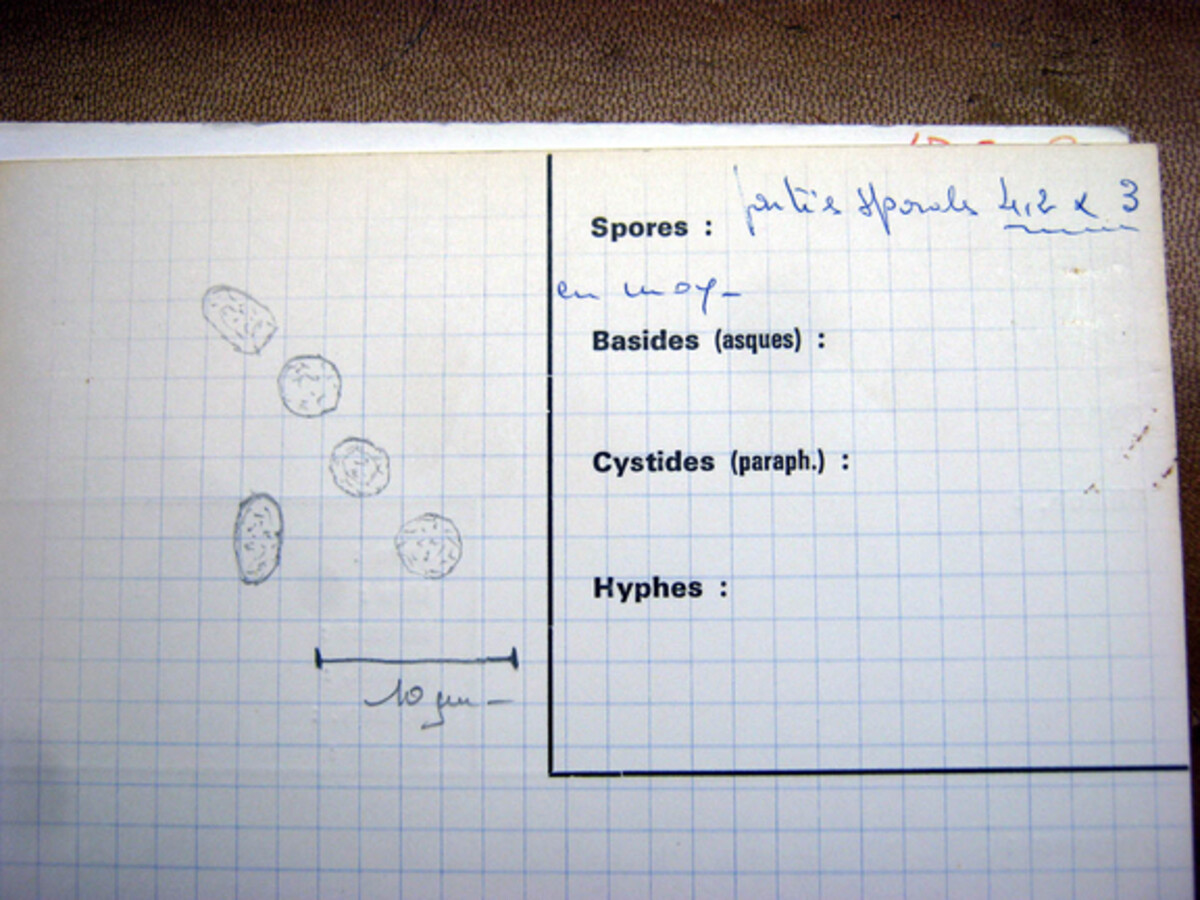 Spores : partie sporales 4,2 x 3
en moy_
Basides (asques) :
Cystides (paraph.) :
Hyphes :
10 µm_